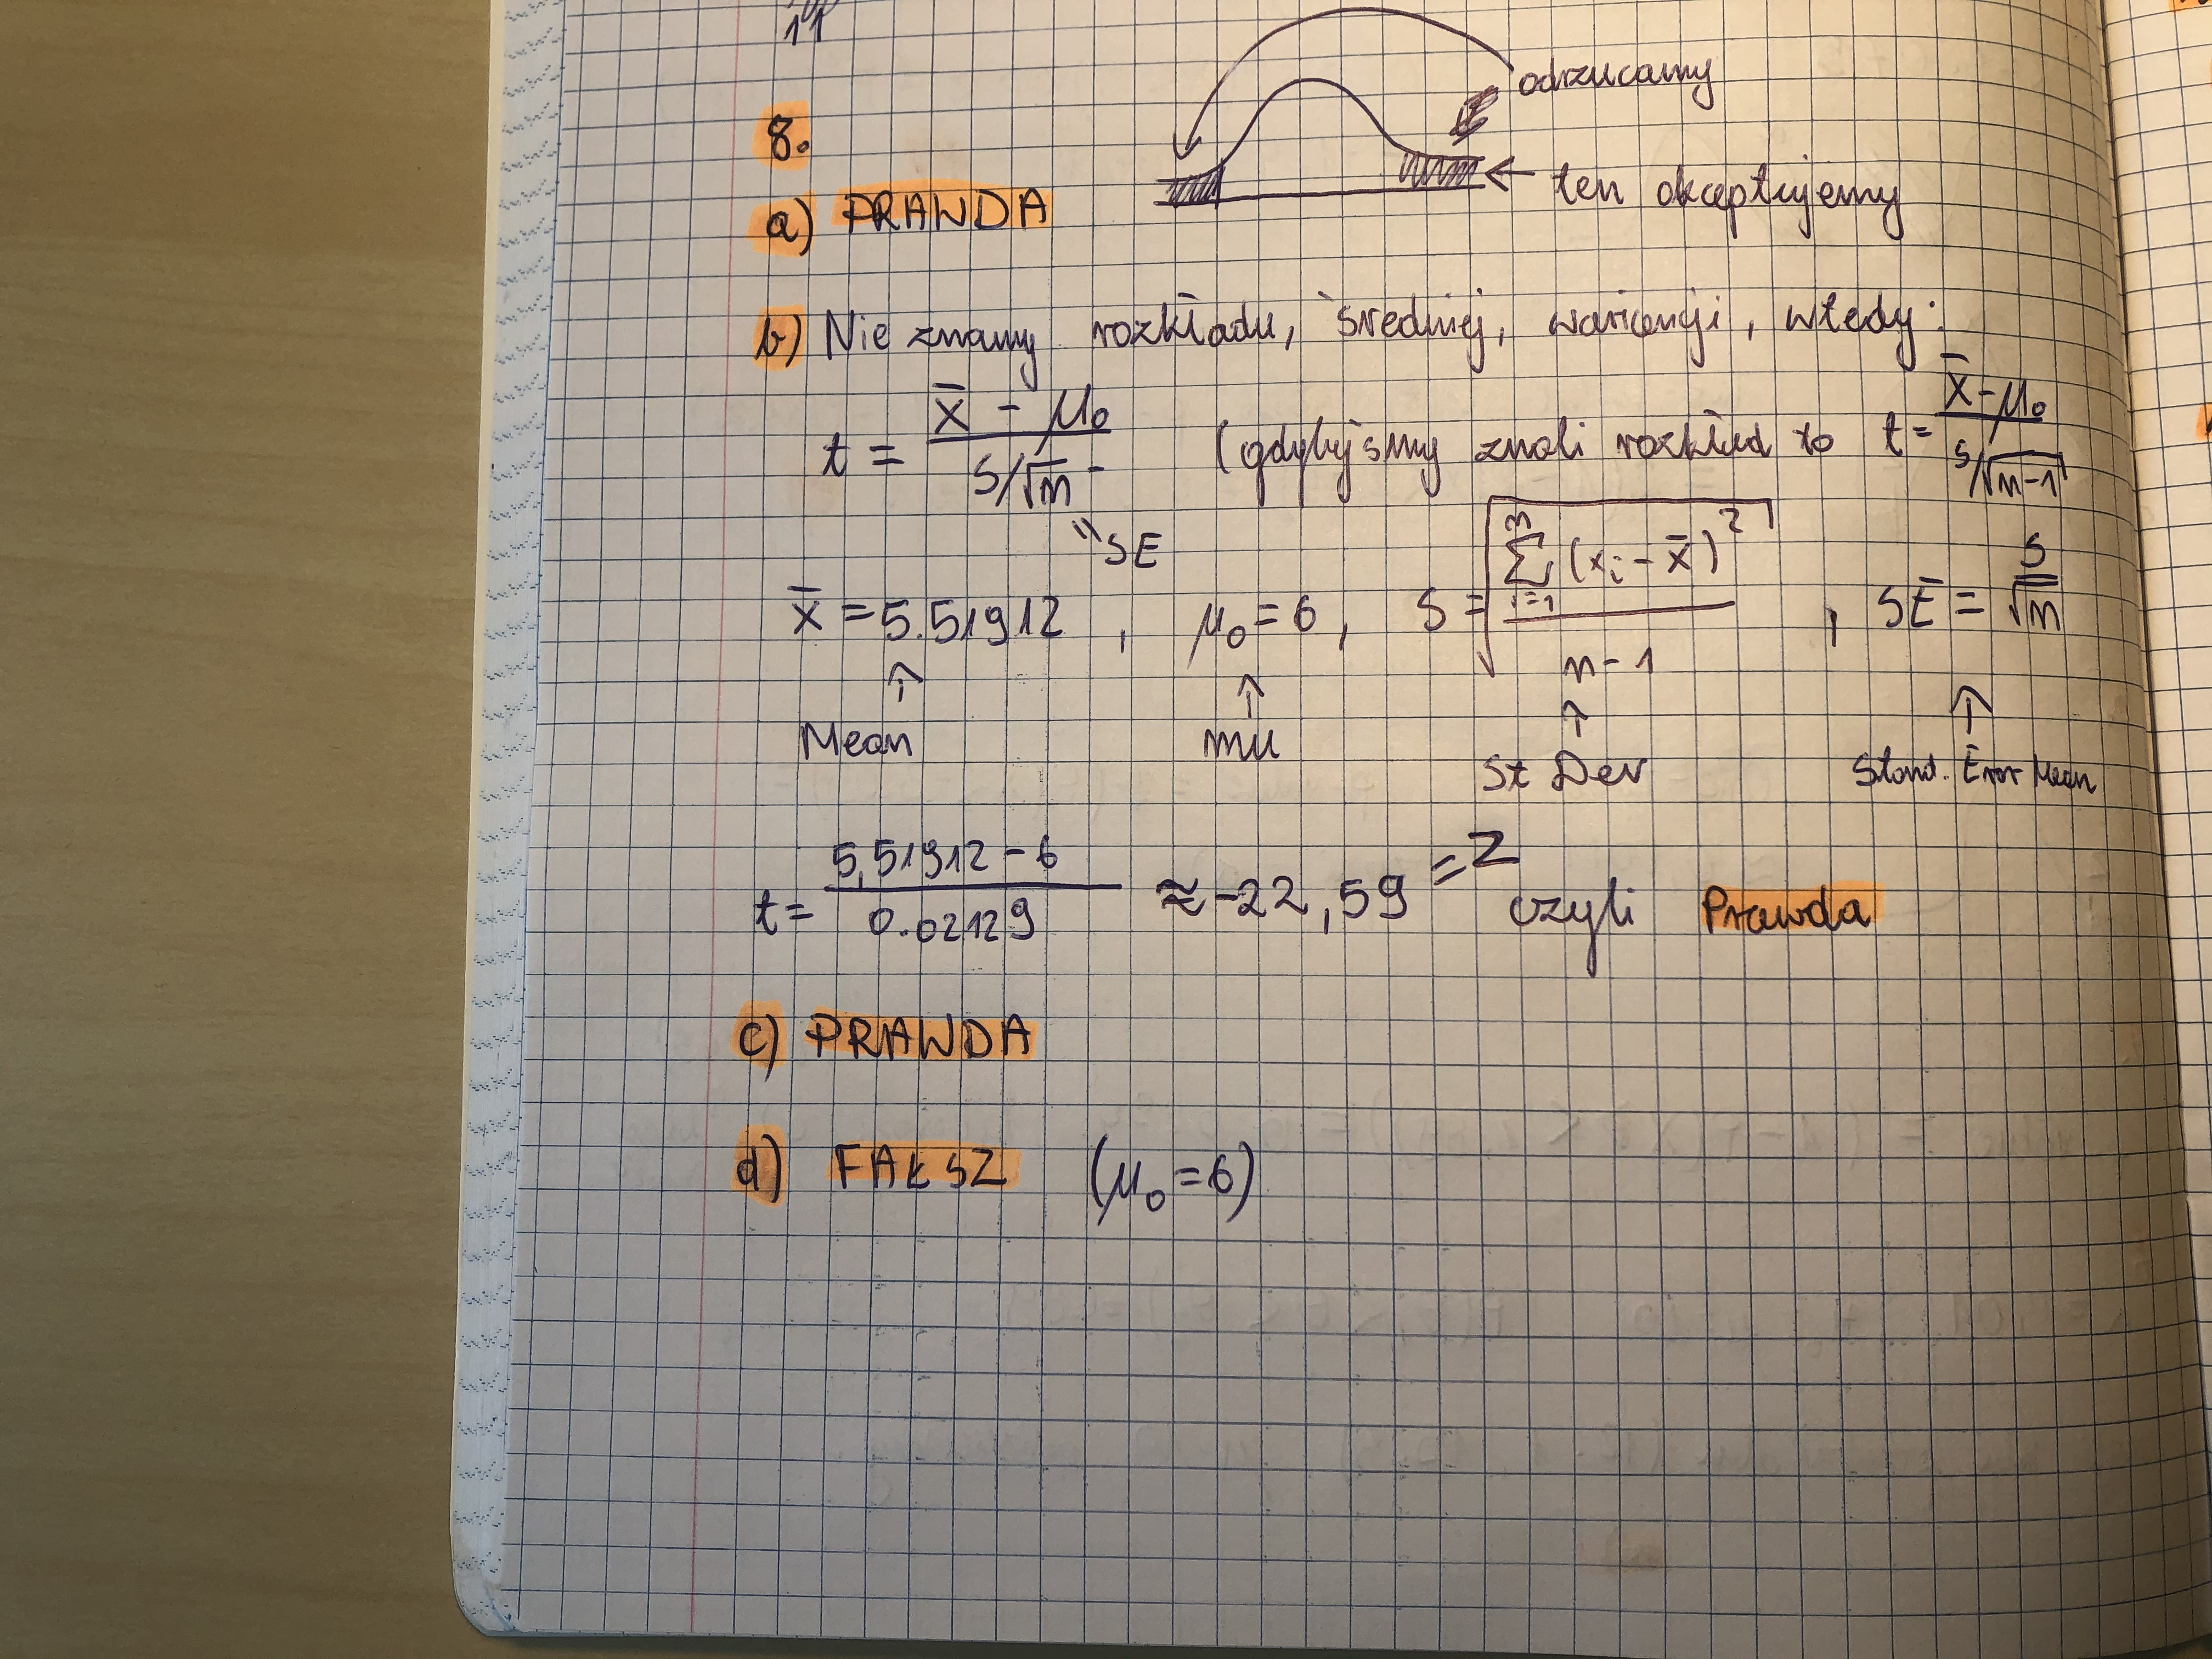 11
odrzucamy
8.
ten akceptujemy
a) PRAWDA
b) Nie znamy rozkładu, średniej, wariancji, wtedy:
t = x̄ - μ₀ / S/√n (gdybyśmy znali rozkład to t = x̄-μ₀ / s/√n-1
"SE
x̄ = 5.51912 , μ₀ = 6 , S = √ Σ i=1 n (xᵢ - x̄)² / n-1 , SE = S / √n
Mean mu St Dev Stand. Error Mean
t = 5,51912 - 6 / 0.02129 ≈ -22,59 = Z czyli Prawda
c) PRAWDA
d) FAŁSZ (μ₀ = 6)